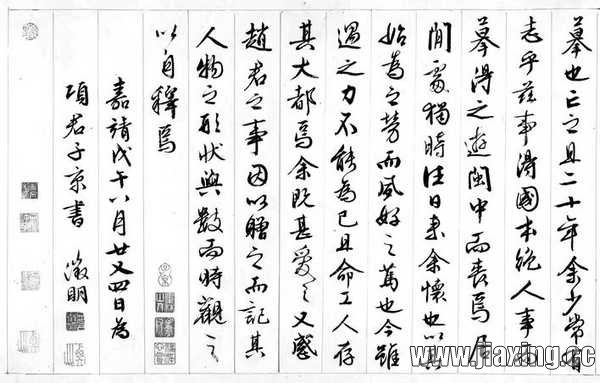 摹也亡之且二十年余少常有
志乎茲事得國本絕人事而
摹得之遊閩中而喪焉居
閒處獨時往來余懷也以其
始為之勞而夙好之篤也今雖
遇之力不能為已且命工人存
其大都焉余既甚愛之又感
趙君之事因以贈之而記其
人物之形狀與數而時觀之
以自釋焉
嘉靖戊午八月廿又四日為
項君子京書 徵明
www.jiaxing.cc